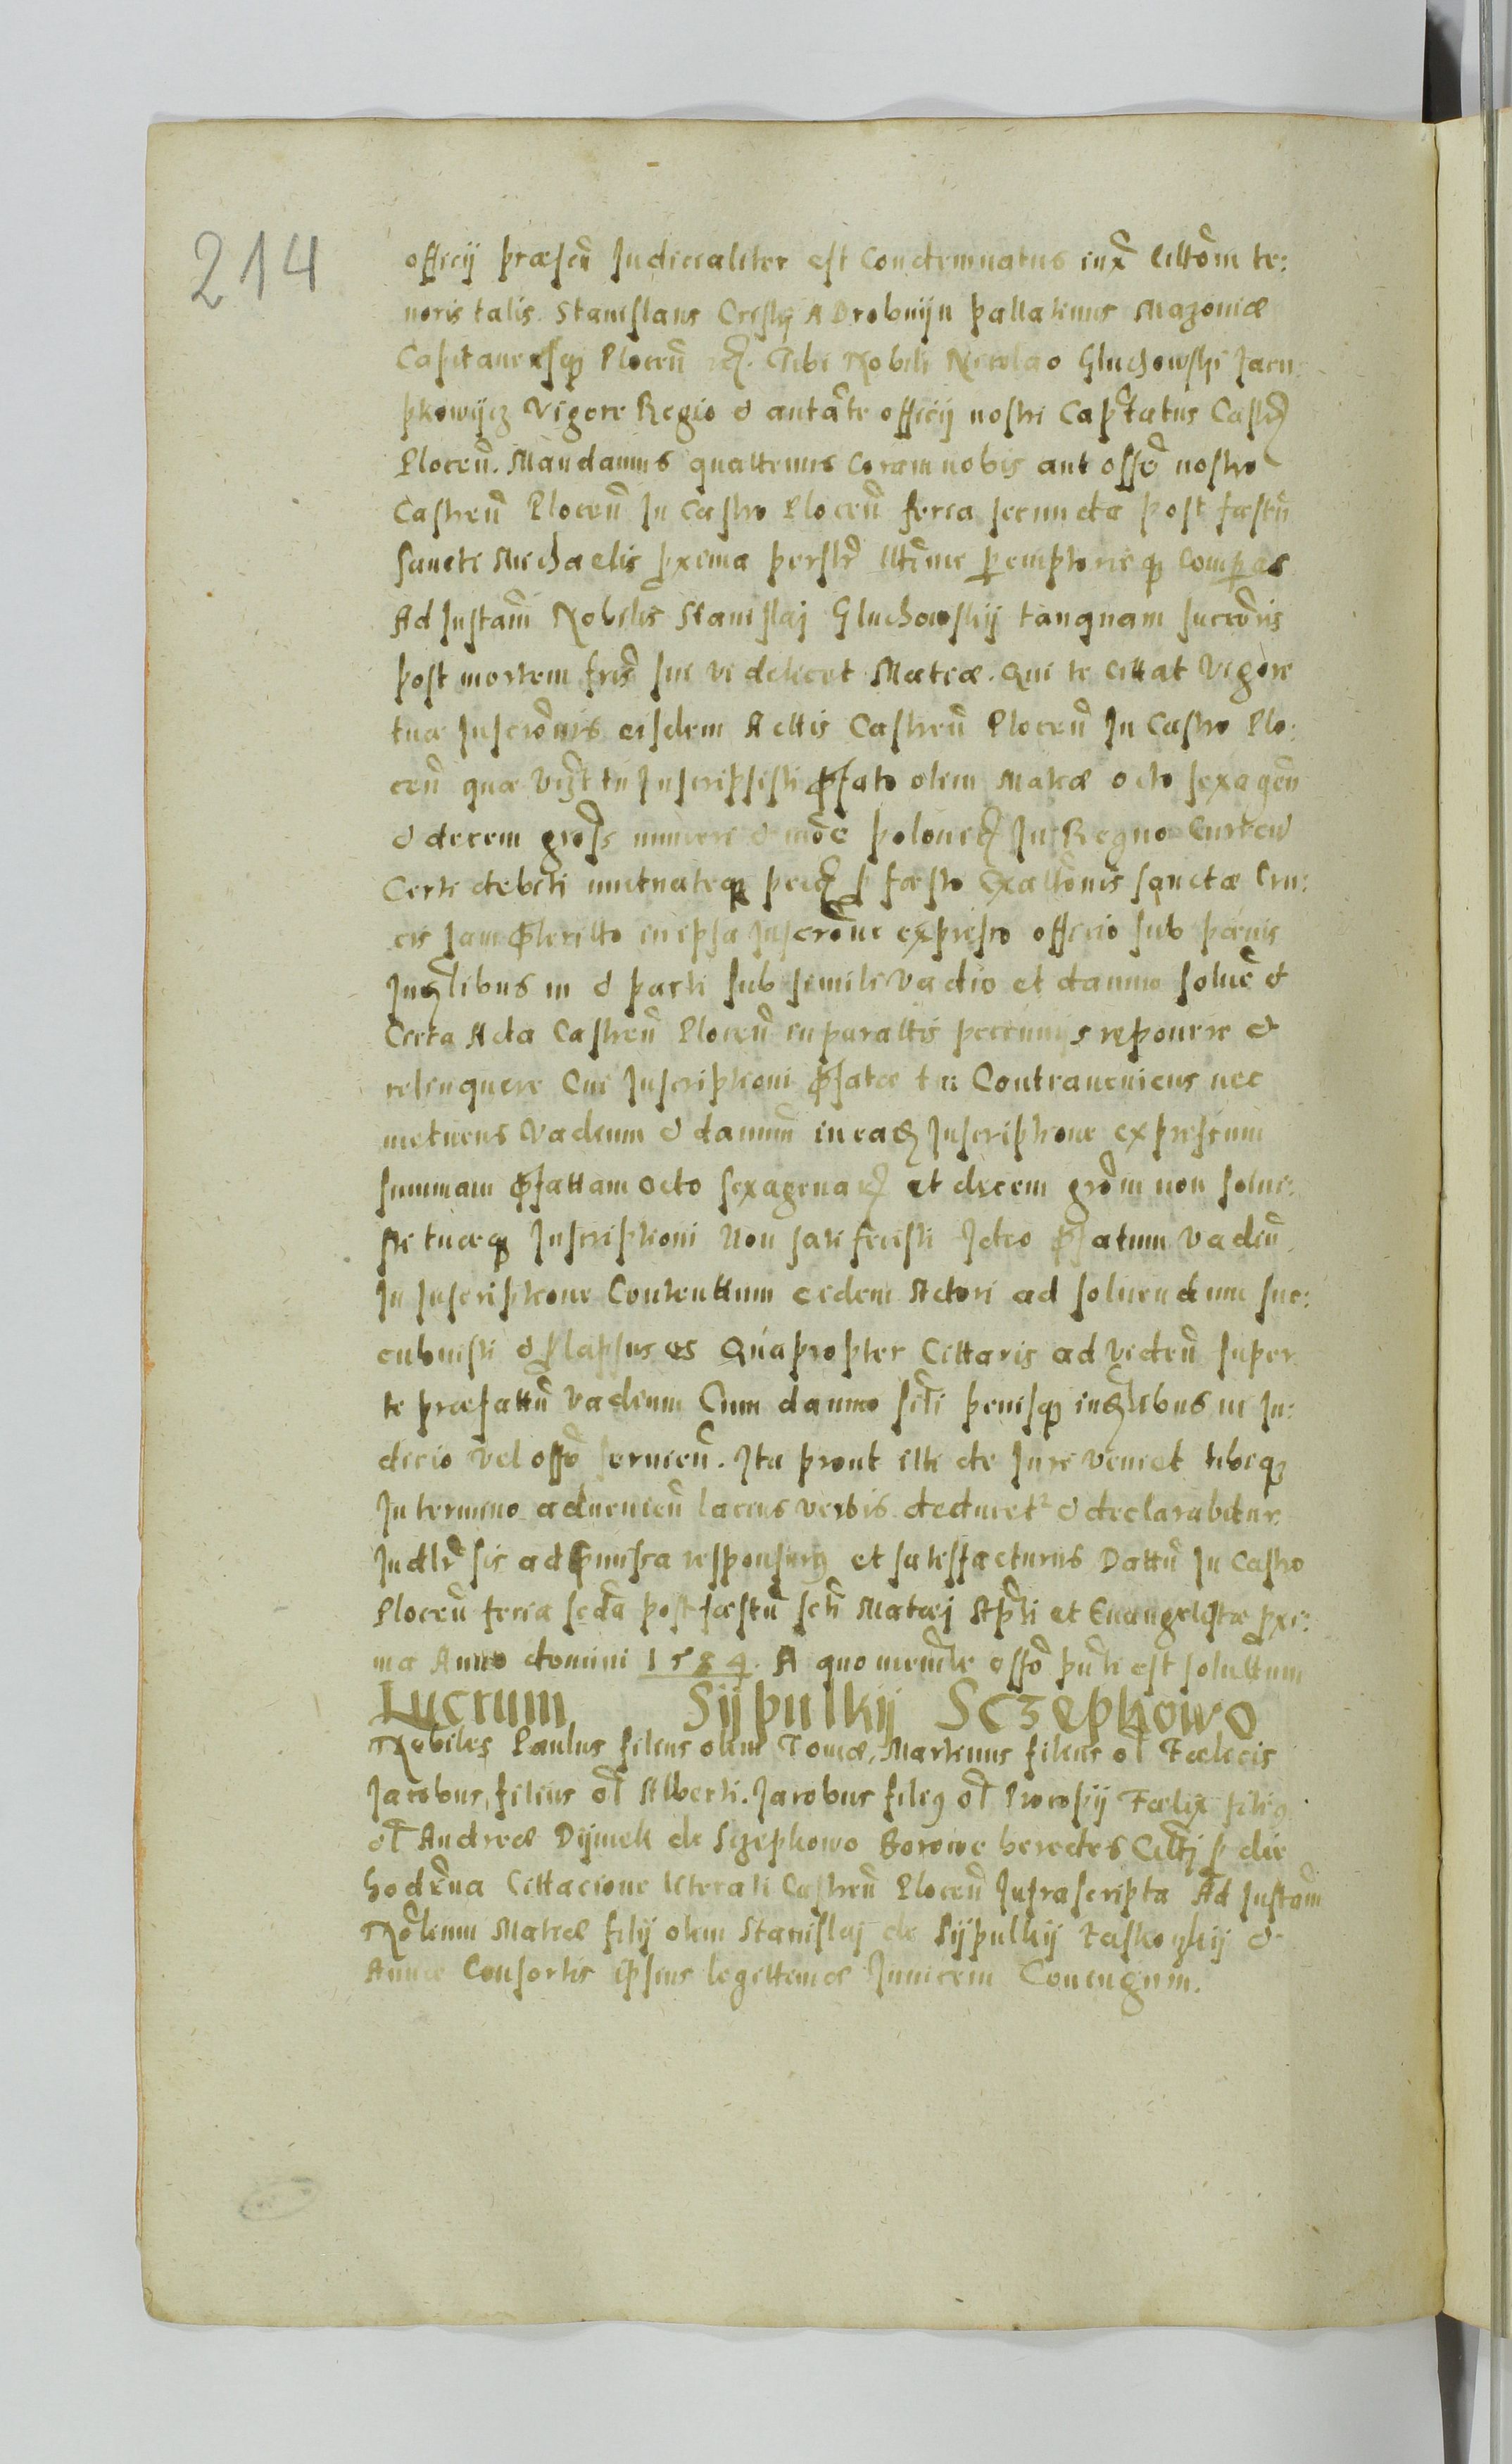 214
officij præsen̄ Judicialiter est Condemnatus iux̄ Cittōm te:
noris talis. Stanislaus Crisky A Drobnijn pallatinus Mazoniæ
Capitaneusq̨ Plocen̄ Tibi Nobili Nicolao Gluchowski Jacu:
pkowijcz Vigore Regio & autāte officij nostri Cap̄tatus Castr̄
Plocen̄. Mandamus quattenus Coram nobis aut offō nostro
Castren̄ Plocen̄ In Castro Plocen̄ feria secunda post fæstū
Sancti Michaelis p̄xima perslr̄ pemptorieq̨ Compeas
Ad Instan̄ Nobilis Stanislaj Gluchowskij tanquam succōris
post mortem frīs sui videlicet Matiæ. Qui te cittat Vigore
tuæ Inscrōnis eisdem Actis Castren̄ Plocen̄ In Castro Plo:
cen̄ quæ vizt tu Inscripsisti p̄fato olim Matiæ octo sexagen̄
& decem gross̄ numeri & mōe polonicꝶ In Regno Curren̄
Certi debiti mutuateq̨ pecꝶ p fæsto Exaltōnis sanctæ Cru:
cis Jam p̄teritto in ipsa Inscrōne expresso officio sub pænis
Juꝶlibus in & parti sub simili vadio et damno soluē &
Circa Acta Castren̄ Plocen̄ in parattis pecunijs reponere &
relinquere Cui Inscriptioni p̄fatæ tu Contraueniens nec
metuens Vadium & damnū in eadꝶ Inscriptione expressum
summam p̄fattam octo sexagenaꝶ et decem grōm non solui:
sti tuæq̨ Inscriptioni Non satifecisti Ideo p̄fatum Vadiū
In Inscriptione Contenttum eidem Actori ad soluendum suc:
cubuisti & p̄lapsus es Quapropter Cittaris ad viden̄ super
te præfattū Vadium Cum damno sīli penisq̨ iuꝶlibus in Ju:
dicio vel offō seruien̄. Ita prout illi de Jure veniet tibiq̨
In termino aduenien̄ lacius verbis deducet² & declarabitur
Judlr̄ sis ad p̄missa responsurꝯ et satisfacturus Dattū In Castro
Plocen̄ feria scda post fæstū sctī Matæj Ap̄li et Euangelistæ p̄xi:
ma Anno domini 1584. A quo offō est soluttum
Lucrum Sijpulkij Sczepkowo
Nobiles Paulus filius olim Tomæ, Martinus filius ol̄ Fælicis
Jacobus, filius ol̄ Alberti. Jacobus filiꝯ ol̄ Procopij Fælix filiꝯ
ol̄ Andreæ Dijmek de Sczepkowo Borowe heredes Cittj p die
hodierna Cittacione literali Castren̄ Plocen̄ Infrascripta Ad Instan̄
Nōlium Matiæ filij olim Stanislaj de Sijpulkij &
Annæ Consortis ipsius legittimæ Inuicem Coniugum.